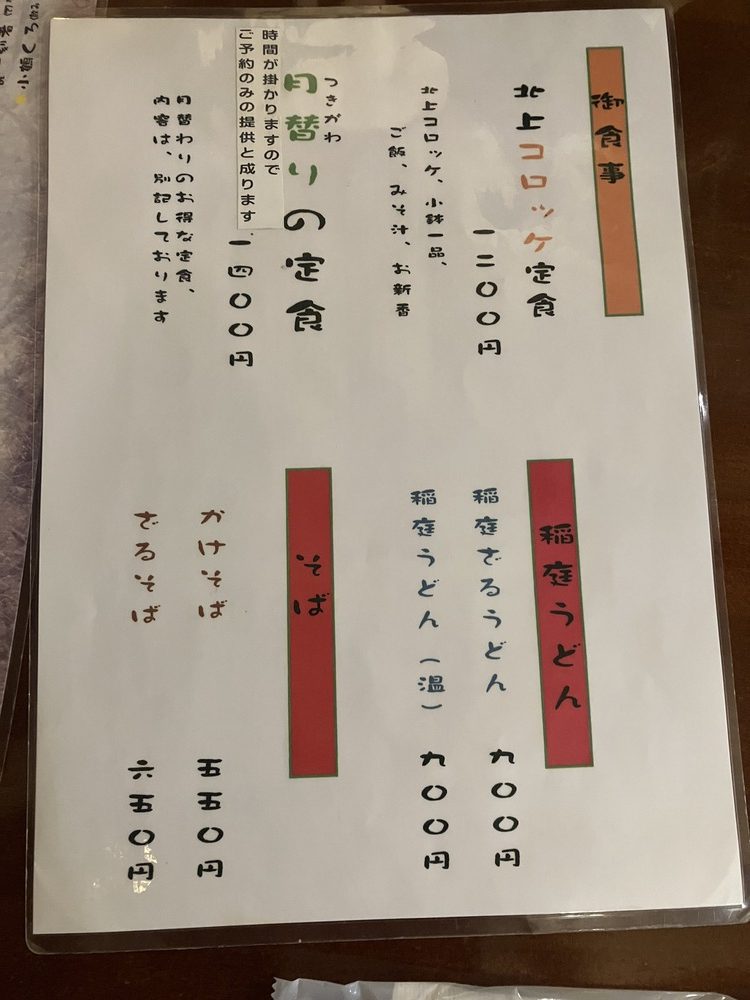 御食事
北上コロッケ定食
一二〇〇円
北上コロッケ、小鉢一品、
ご飯、みそ汁、お新香
つきがわ
月替りの定食
時間が掛かりますので
ご予約のみの提供と成ります
一四〇〇円
月替わりのお得な定食、
内容は、別記しております
稲庭うどん
稲庭ざるうどん
九〇〇円
稲庭うどん(温)
九〇〇円
そば
かけそば
五五〇円
ざるそば
六五〇円